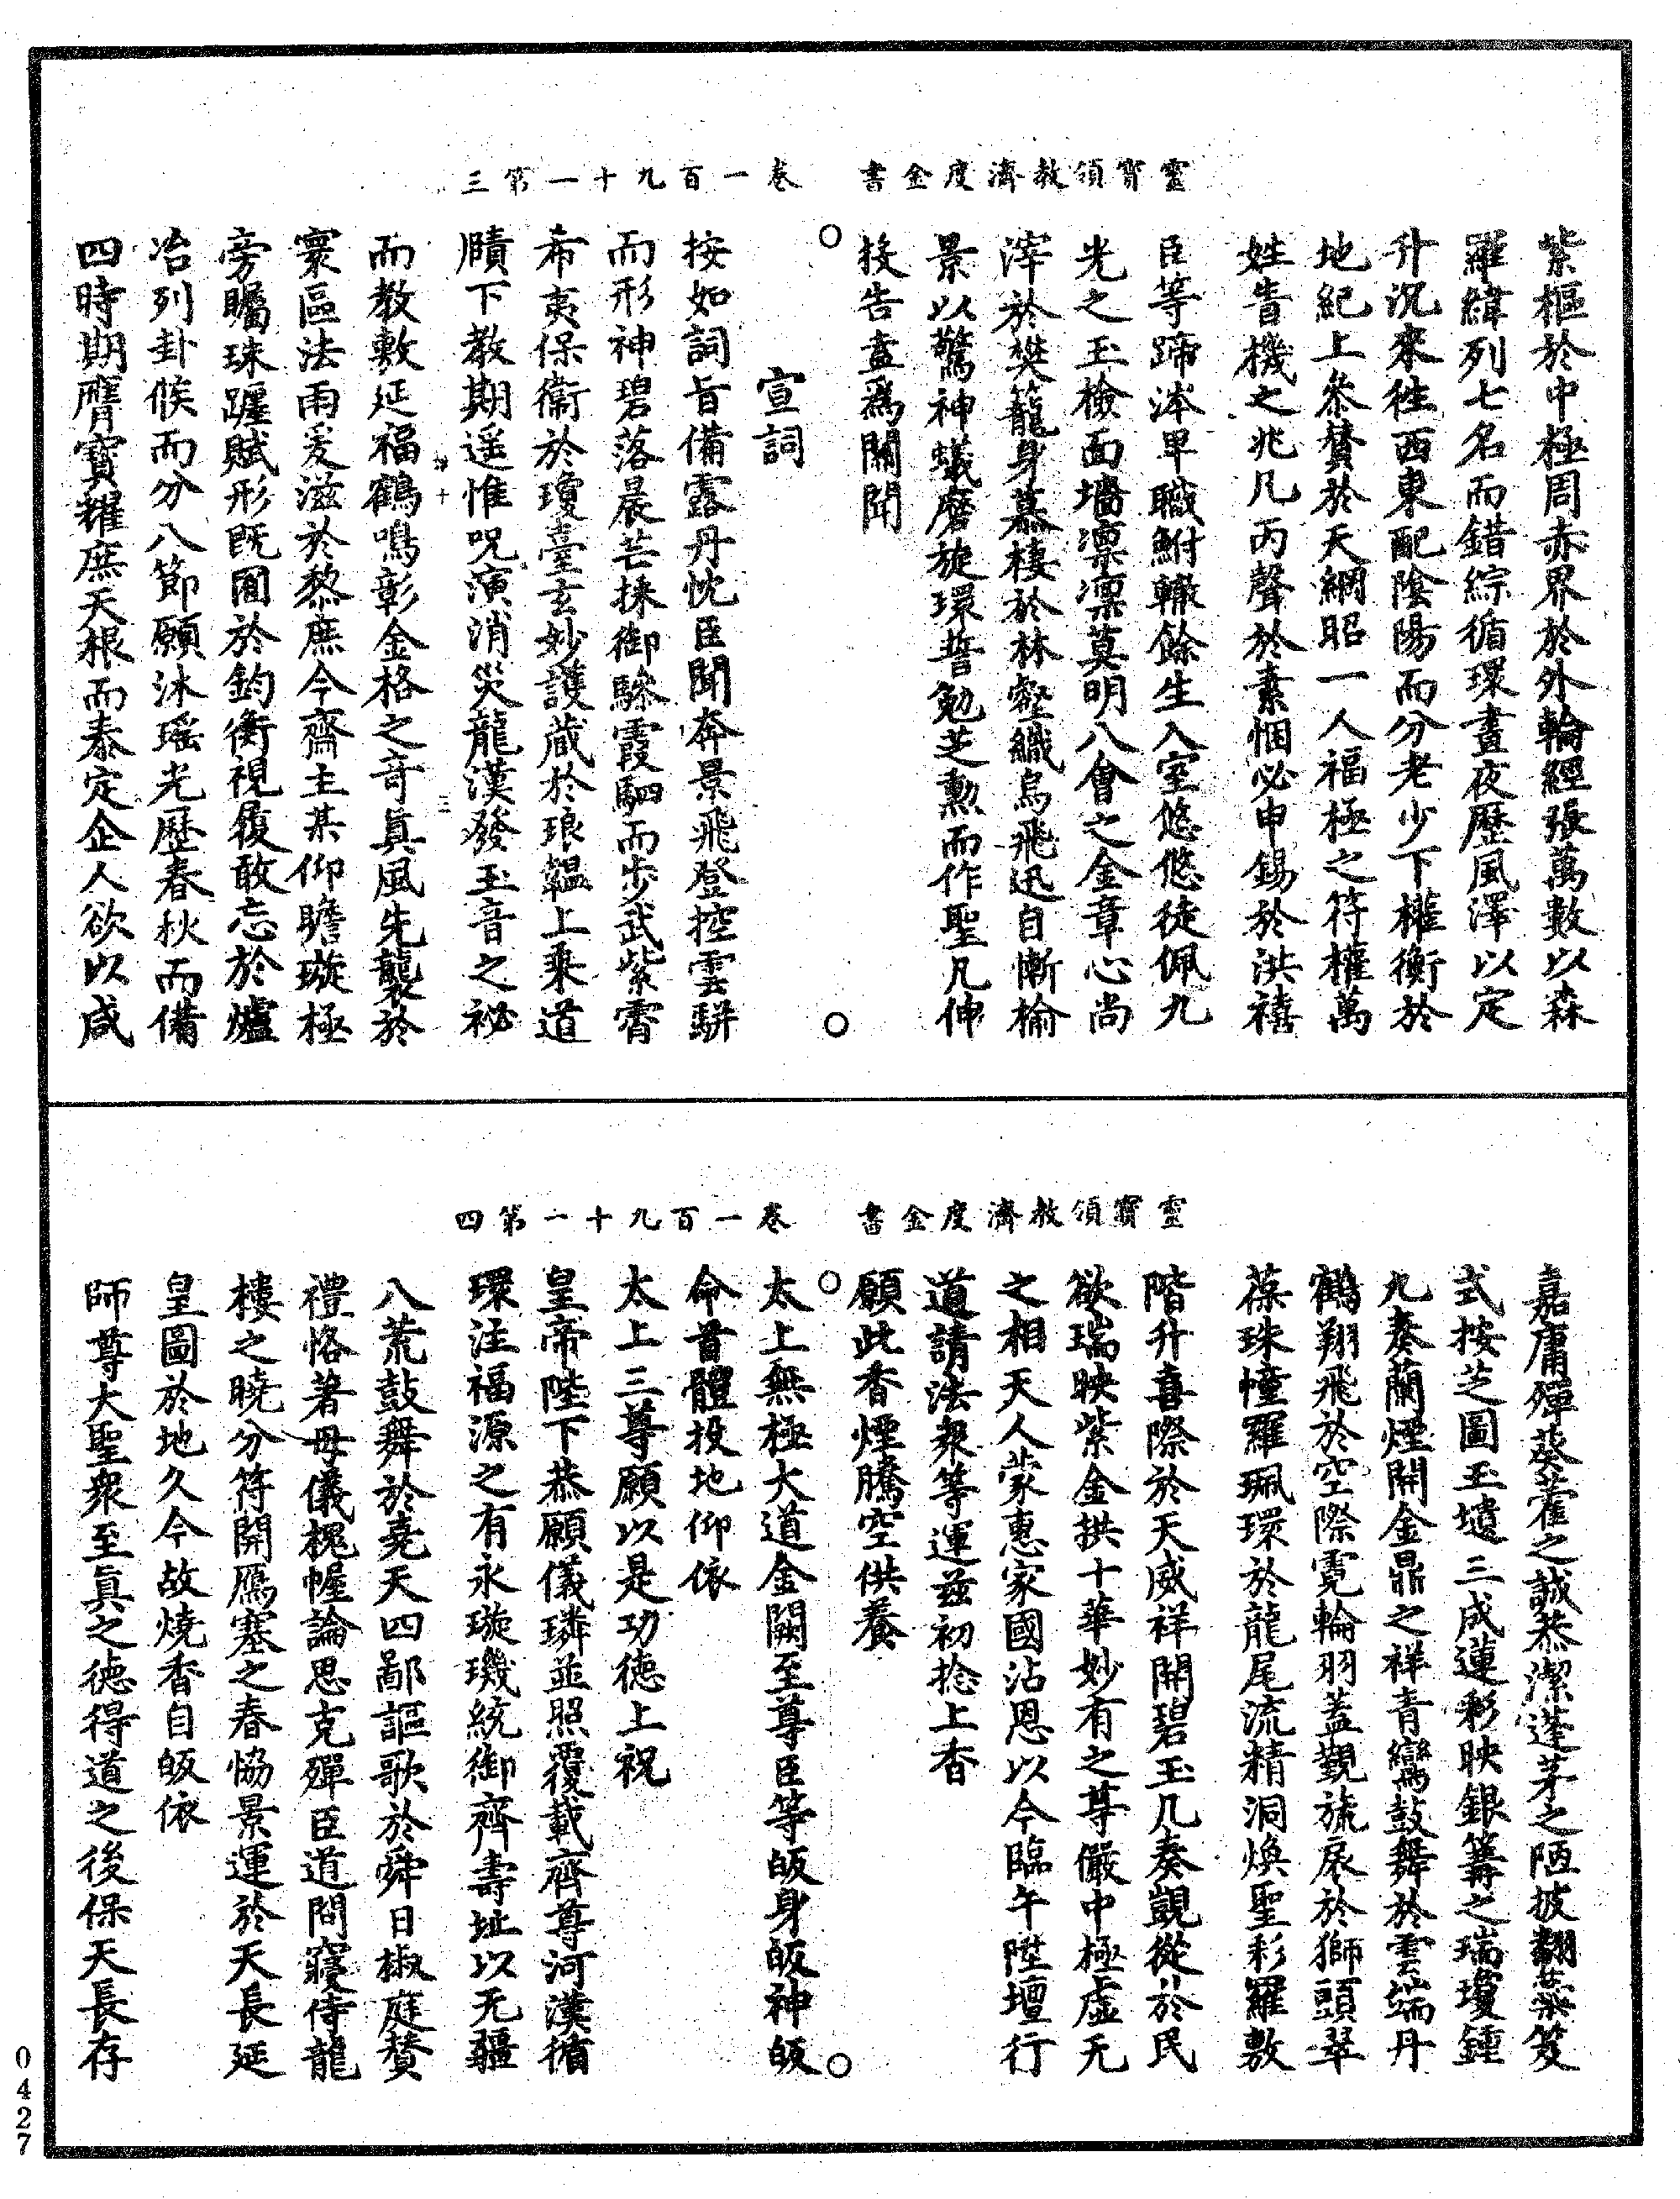 靈寶領教濟度金書　卷一百九十一第三
紫樞於中極周赤界於外輪經張萬數以森
羅緯列七名而錯綜循環晝夜歷風澤以定
升沉來徃西東配陰陽而分老少下權衡於
地紀上叅賛於天綱昭一人福極之符權萬
姓眚機之兆凡丙聲於素悃必申錫於洪禧
臣等蹄涔卑職鮒轍餘生入室悠悠徒佩九
光之玉檢面墻凛凛莫明八會之金章心尚
滓於樊籠身慕棲於林壑纖烏飛迅自慚榆
景以驚神蟻磨旋環誓勉芝勲而作聖凡伸
投告盡爲關聞
宣詞
按如詞旨備露丹忱臣聞奔景飛登控雲駢
而形神碧落晨芒採御驂霞駟而步武紫霄
希夷保衛於瓊臺玄妙護蔵於琅韞上乘道
賾下教期遥惟呪演消災龍漢發玉音之祕
而教敷延福鶴鳴彰金格之竒眞風先襲於
寰區法雨爰滋於黎庶今齋主某仰瞻璇極
旁矚珠躔賦形旣囿於鈞衡視履敢忘於爐
冶列卦候而分八節願沐瑶光歷春秋而備
四時期膺寳耀庶天根而泰定企人欲以咸
靈寶領教濟度金書　卷一百九十一第四
嘉庸殫葵藿之誠恭潔蓬茅之陋披翻蘂笈
式按芝圖玉壝三成蓮彩映銀篝之瑞瓊鍾
九奏蘭煙開金鼎之祥青鸞鼓舞於雲端丹
鶴翔飛於空際霓輪羽蓋覲旒扆於獅頭翠
葆珠幢羅珮環於龍尾流精洞煥聖彩羅敷
階升喜際於天威祥開碧玉几奏覬從於民
欲瑞映紫金拱十華妙有之尊儼中極虚无
之相天人蒙惠家國沾恩以今臨午陞壇行
道請法衆等運兹初捻上香
願此香煙騰空供養
太上無極大道金闕至尊臣等皈身皈神皈
命首體投地仰依
太上三尊願以是功德上祝
皇帝陛下恭願儀璘並照覆載齊尊河漢循
環注福源之有永璇璣統御齊壽址以无疆
八荒鼓舞於堯天四鄙謳歌於舜日椒庭賛
禮恪著母儀槐幄論思克殫臣道問寢侍龍
樓之曉分符開鴈塞之春恊景運於天長延
皇圖於地久今故燒香自皈依
師尊大聖衆至眞之德得道之後保天長存
0427